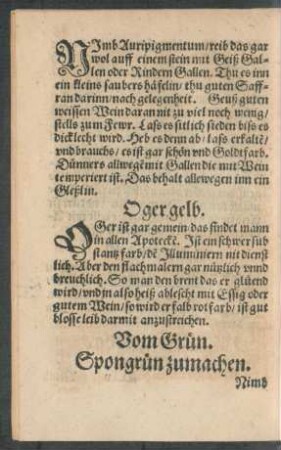 NImb Auripigmentum/ reib das gar
wol auff einem stein mit Geiß Gal-
len oder Rindern Gallen. Thu es inn
ein kleins saubers häfelin/ thu guten Saff-
ran darinn/ nach gelegenheit. Geuß guten
weissen Wein daran nit zu viel noch wenig/
stells zum Fewr. Laß es sitlich sieden biß es
dicklecht wird. Heb es denn ab/ laß erkaltē/
vnd brauchs/ es ist gar schön vnd Goldtfarb.
Dünners allwegē mit Gallen die mit Wein
temperiert ist. Das behalt allewegen inn ein
Gleßlin.
Oger gelb.
OGer ist gar gemein/ das findet mann
in allen Apoteckē. Ist ein schwer sub
stantz farb/ dē Illuminiern nit dienst
lich. Aber den flachmalern gar nützlich vnnd
breuchlich. So man den brent das er glüend
wird/ vnd in also heiß ablescht mit Essig oder
gutem Wein/ so wird er falb rotfarb/ ist gut
blosse leib darmit anzustreichen.
Vom Grün.
Spongrün zumachen.
Nimb